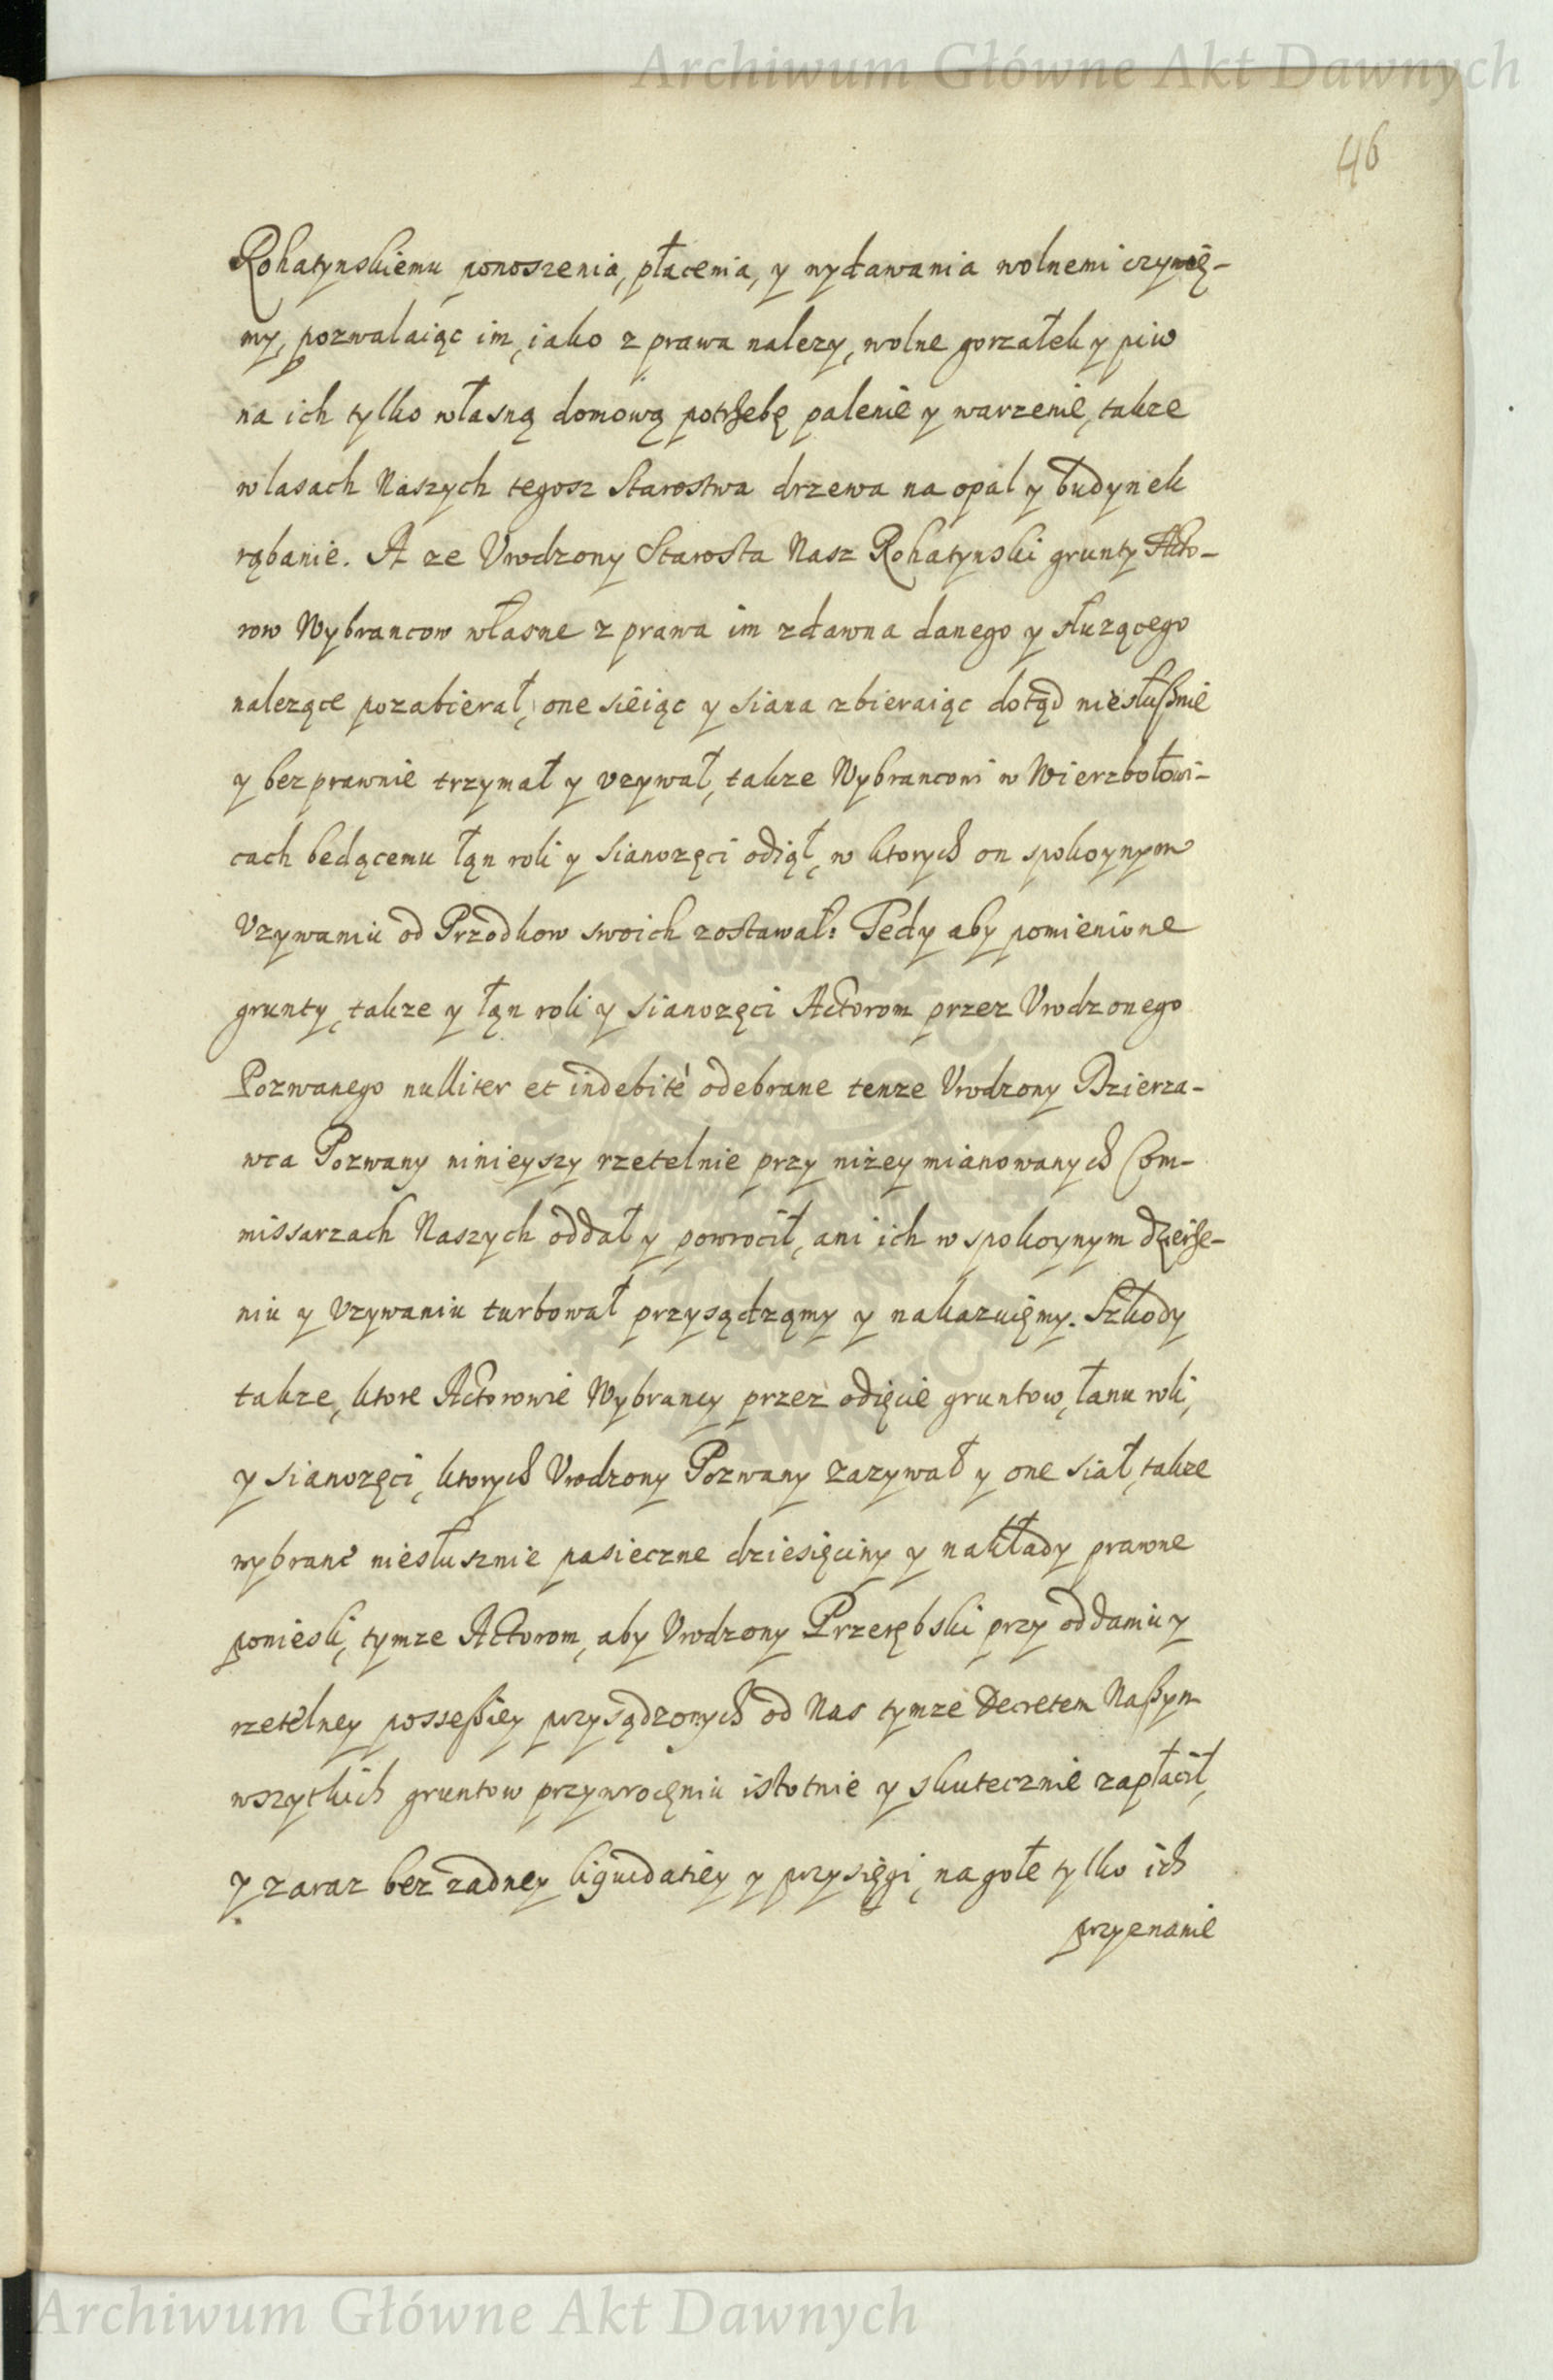 Archiwum Główne Akt Dawnych
46
Rohatynskiemu ponoszenia, płacenia, y wydawania wolnemi czynię-
my, pozwalaiąc im, iako z prawa nalezy, wolne gorzałek y piw
na ich tylko własną domową potrzebę palenie y warzenie, takze
w lasach Naszych tegosz Starostwa drzewa na opał y budynek
rąbanie. A ze Vrodzony Starosta Nasz Rohatynski grunty Acto-
row Wybrancow własne z prawa im zdawna danego y słuzącego
nalezące pozabierał, one sieiąc y siana zbieraiąc dotąd niesłußnie
y bezprawnie trzymał y vzywał, takze Wybrancowi w Wierzbołowi-
cach bedącemu łąn roli y sianozęci odiął, w ktorych on spokoynym
Vzywaniu od Przodkow swoich zostawał: Tedy aby pomienione
grunty, takze y łąn roli y sianozęci Actorom przez Vrodzonego
Pozwanego nulliter et indebité odebrane tenze Vrodzony Dzierza-
wca Pozwany ninieyszy rzetelnie przy niżey mianowanych Com-
missarzach Naszych oddał y powrocił, ani ich w spokoynym dzierże-
niu y Vzywaniu turbował przysądzamy y nakazuięmy. Szkody
takze, ktore Actorowie Wybrancy przez odięcie gruntow, łanu roli,
y sianozęci, ktorych Vrodzony Pozwany zazywał y one siał, takze
wybrané niesłusznie pasieczne dziesięciny y nakłady prawne
poniesli, tymze Actorom, aby Vrodzony Przerębski przy oddaniu y
rzetelney possessiey przysądzonych od Nas tymze Decretem Naßym
wszytkich gruntow przywrocęniu istotnie y skutecznie zapłacił,
y zaraz bez zadney liquidatiey y przysięgi, na gołe tylko ich
przyznanie
Archiwum Główne Akt Dawnych